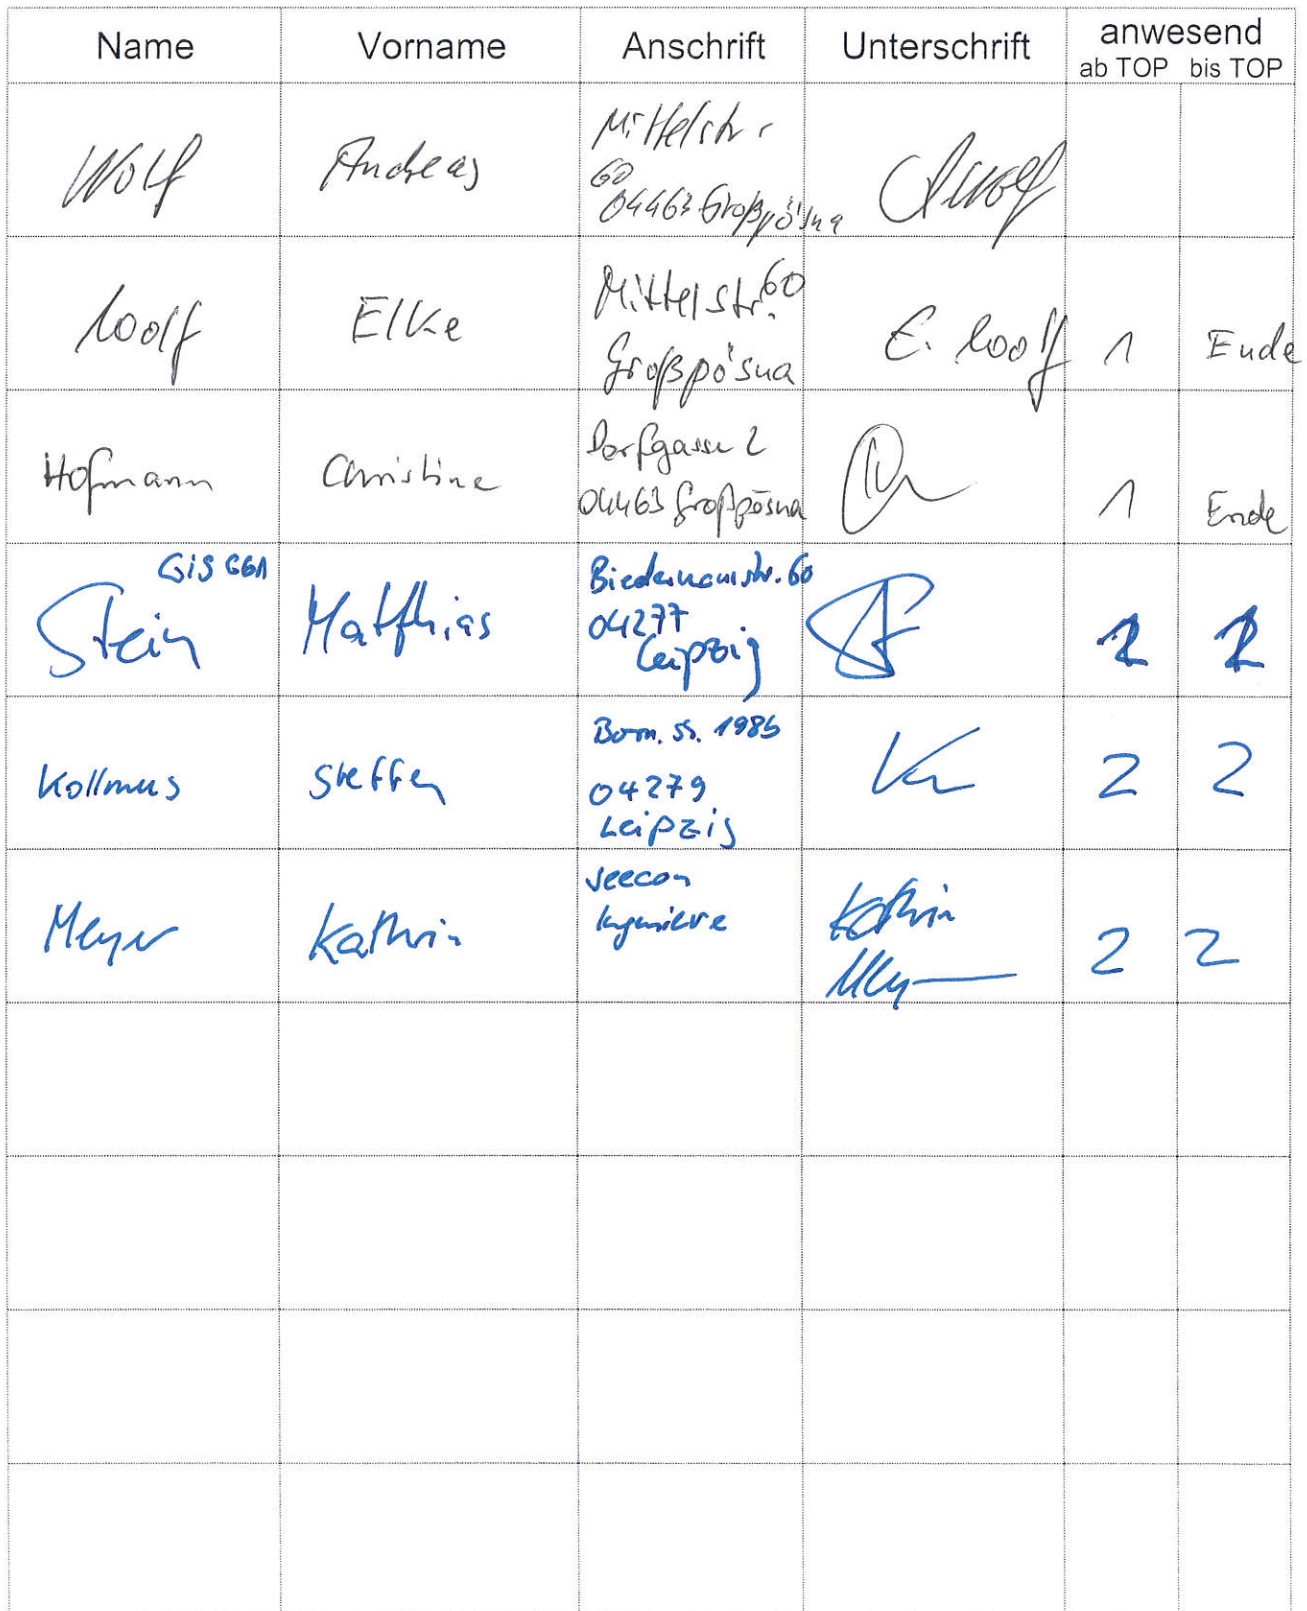 Name Vorname Anschrift Unterschrift anwesend
ab TOP bis TOP
Wolf Andreas Mittelstr.
60
04463 Großpösna
Wolf Elke Mittelstr. 60
Großpösna E. Wolf 1 Ende
Hofmann Christine Dorfgasse 2
04463 Großpösna 1 Ende
GiS GGA
Stein Matthias Biedermannstr. 60
04277
Leipzig
Kollmus Steffen
04279
Leipzig 2 2
Meyer Kathrin seecon
Ingenieure Kathrin
Meyer 2 2